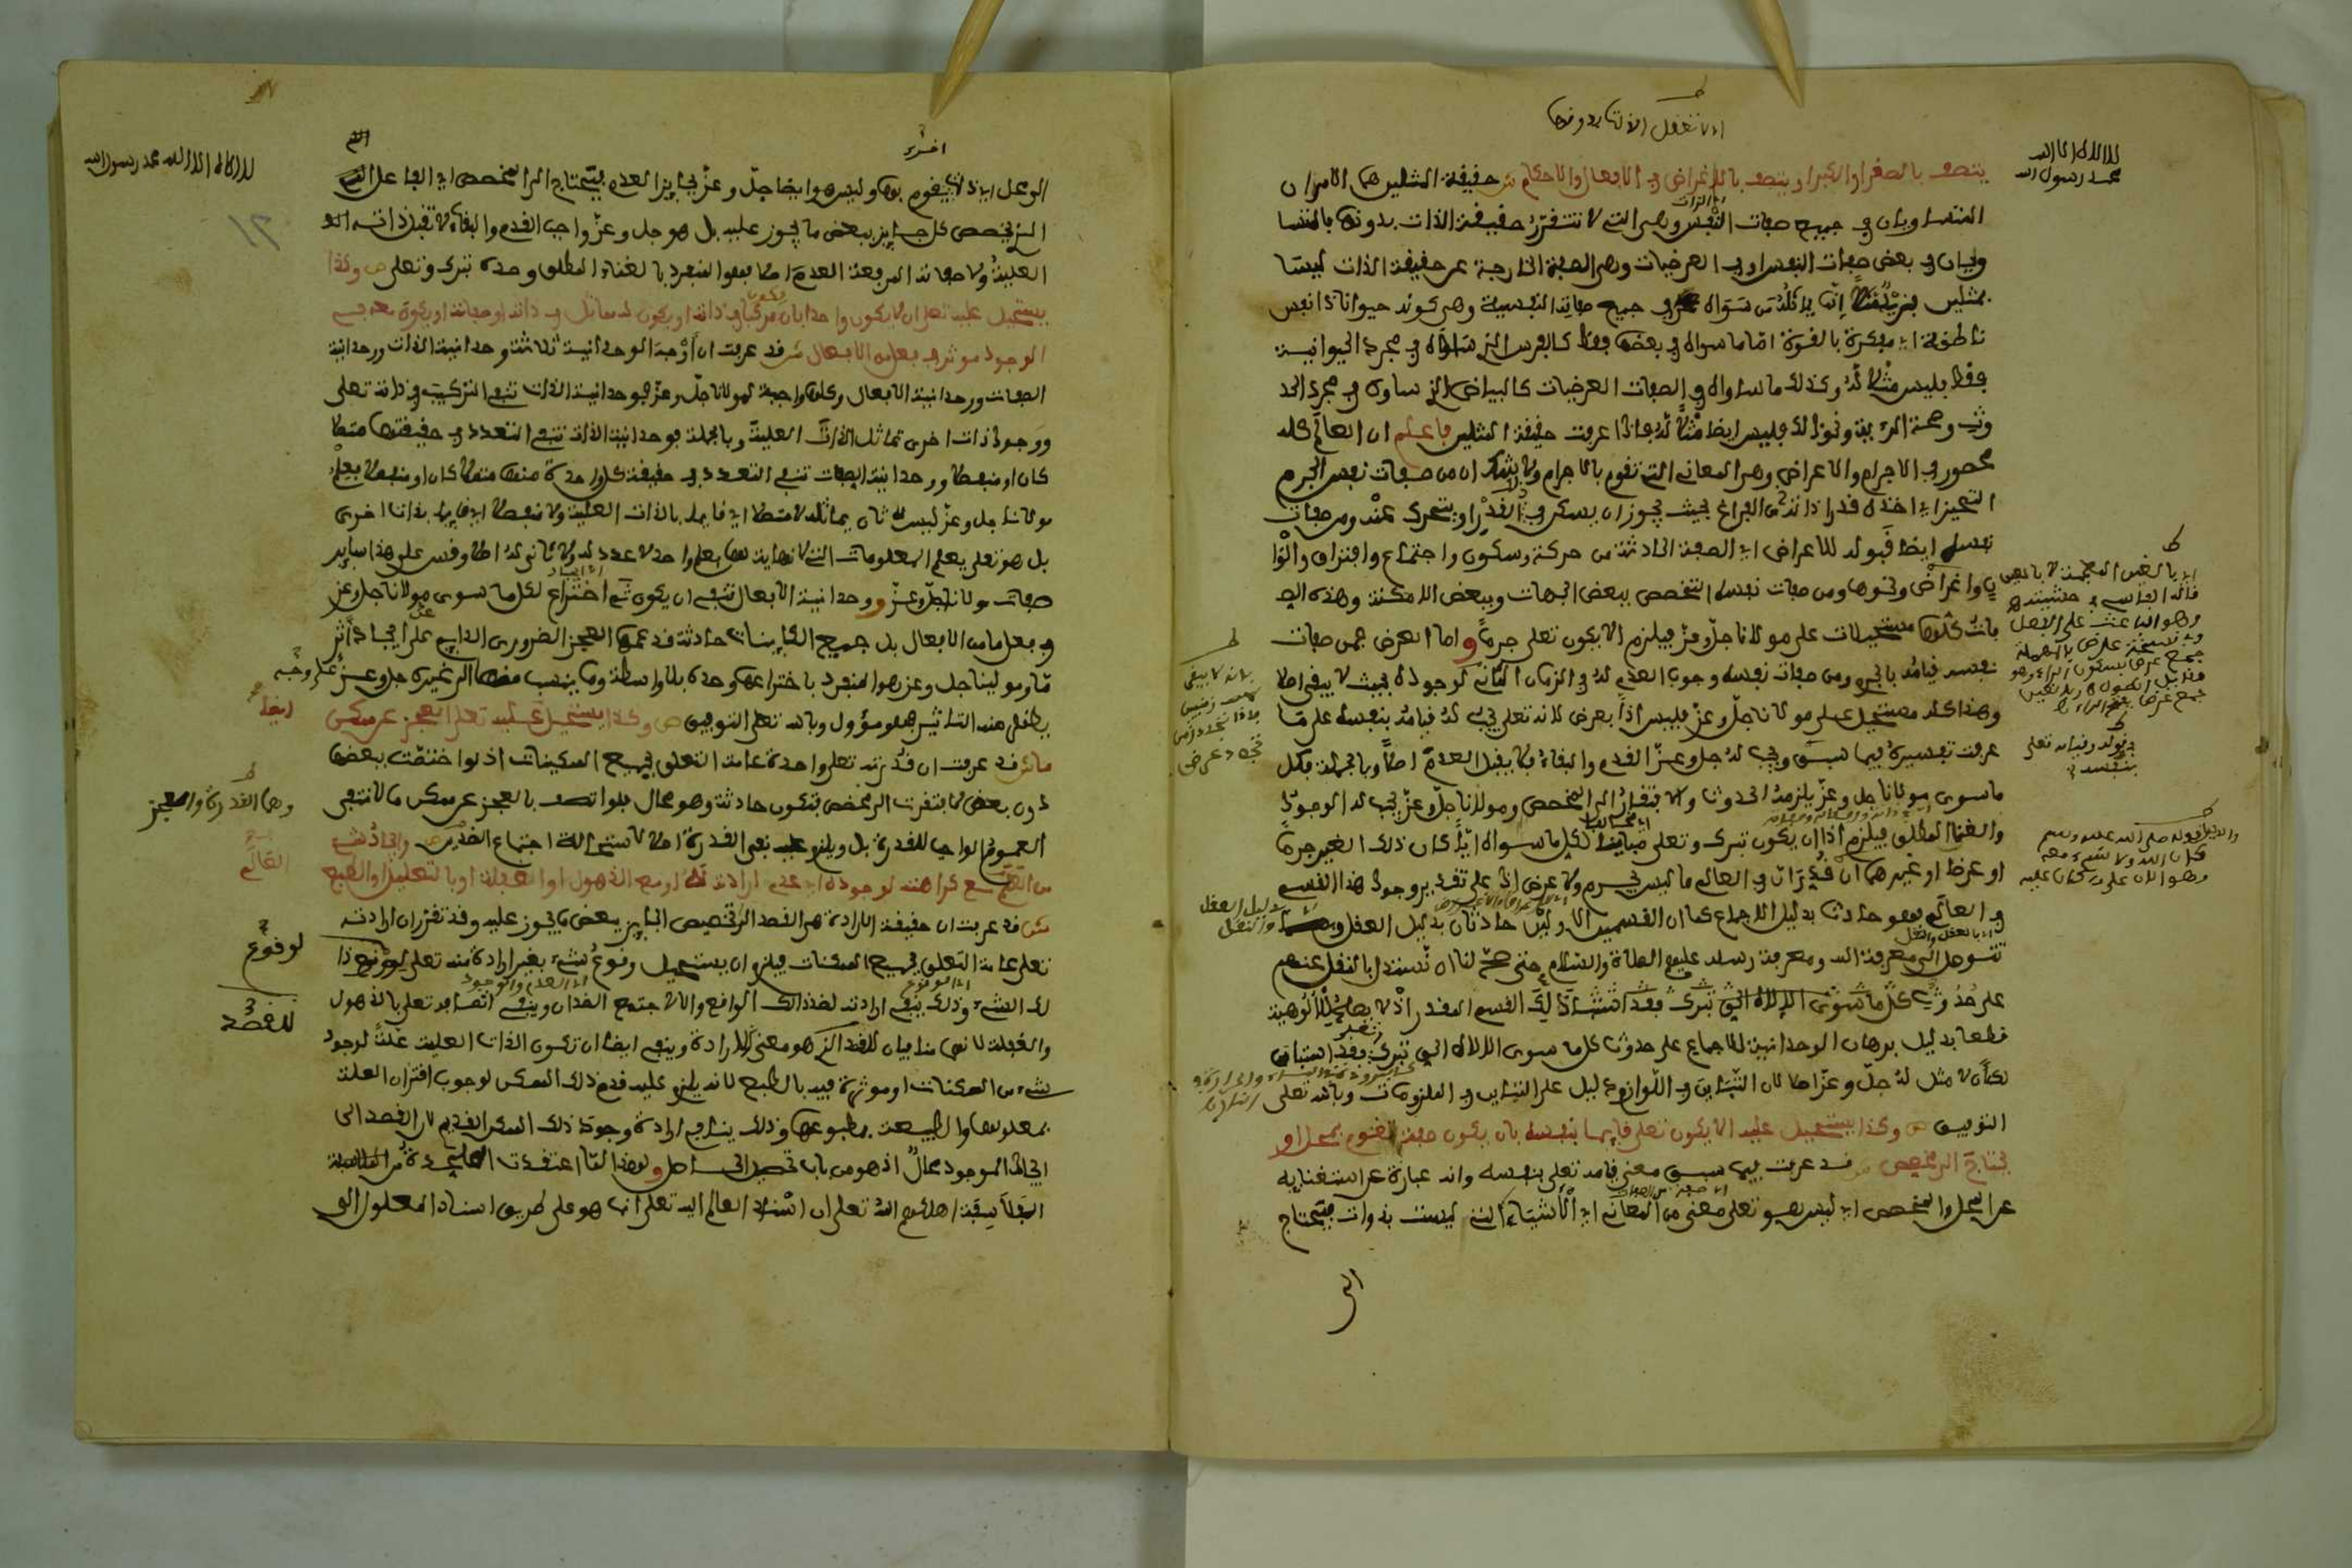 اي لا تتعقل الذات بدونها
لا اله الا الله
محمد رسول الله
يتصف بالصغر او الكبر او يتصف بالاغراض في الافعال والاحكام ش حقيقة المثلين هما الامران
المتساويان في جميع صفات النفس وهي التي لا تتقرر حقيقة الذات بدونها فالمتسا
ويان في بعض صفات النفس او في العرضيات وهي الصفة الخارجة عن حقيقة الذات ليسا
بمثلين فزيد مثلا انما يماثله من سواه في جميع صفاته النفسية وهي كونه حيوانا ذا نفس
ناطقة اي مفكرة بالقوة اما ما سواه في بعضها فقط كالفرس الذي ساواه في مجرد الحيوانية
فقط فليس مثلا له وكذلك ما ساواه في الصفات العرضيات كالبياض الذي ساوى في مجرد الحد
وث وصحة الرؤية ونحو ذلك فليس ايضا مثلا له فاذا عرفت حقيقة المثلين فاعلم ان العالم كله
محصور في الاجرام والاعراض وهي المعاني التي تقوم بالاجرام ولا شك ان من صفات نفس الجرم
التحيز اي اخذه قدر ذاته من الفراغ بحيث يجوز ان يسكن في ذلك القدر او يتحرك عنه ومن صفات
نفسه ايضا قبوله للاعراض اي الصفة الحادثة من حركة وسكون واجتماع وافتراق والوا
ن واغراض ونحوها ومن صفات نفسه التخصص ببعض الجهات وببعض الامكنة وهذه الصـ
فات كلها مستحيلات على مولانا جل وعز فيلزم الا يكون تعلى جرما و اما العرض فمن صفات
نفسه قيامه بالجرم ومن صفات نفسه وجوب العدم له في الزمان الثاني لوجوده بحيث لا يبقى اصلا
وهذا كله مستحيل على مولانا جل وعز فليس اذا بعرض لانه تعلى يجب له قيامه بنفسه على ما
عرفت تفسيره فيما سبق ويجب له جل وعز القدم والبقاء فلا يقبل العدم اصلا وبالجملة فكل
ما سوى مولانا جل وعز يلزمه الحدوث والافتقار الى المخصص ومولانا جل وعز يجب له الوجود
والغنا المطلق فيلزم اذا ان يكون تبرك وتعلى مخالفا لكل ما سواه ايا كان ذلك الغير جرما
او عرضا او غيرهما ان قدر ان في العالم ما ليس بجرم ولا عرض اذ على تقدير وجود هذا القسم
في العالم فهو حادث بدليل الاجماع كما ان القسمين الاولين حادثان بدليل العقل
نتوصل الى معرفة الله ومعرفة رسله عليهم الصلاة والسلام حتى صح لنا ان نستدل بالنقل عنهم
على حدوث كل ما سوى الاله الحق تبرك فقد اذ ذلك القسم المقدر اذ لا يصلح للالوهية
قطعا بدليل برهان الوحدانية للاجماع على حدوث كل ما سوى الاله الحق تبرك وتعلى فقد استبان
لك ان لا مثل له جل وعز اصلا لان التباين في اللوازم دليل على التباين في الملزومات وبالله تعلى
التوفيق ص وكذا يستحيل عليه الا يكون تعلى قايما بنفسه بان يكون صفة تقوم بمحل او
يحتاج الى مخصص ش قد عرفت فيما سبق معنى قيامه تعلى بنفسه وانه عبارة عن استغنايه
عن المحل والمخصص اي ليس هو تعلى معنى من المعاني اي الاشياء التي ليست بذوات فيحتاج
الى
اي بالغين المعجمة لا بالعين
وهو الباعث على الفعل
في قوله قيامه تعلى
بنفسه
والدليل قوله صلى الله عليه وسلم
كان الله ولا شيء معه
وهو الان على ما كان عليه
لا اله الا الله محمد رسول الله
١٢
الى محل اي ذات يقوم بها وليس هو ايضا جل وعز بجايز العدم فيحتاج الى المخصص اي الفاعل
الذي يخصص كل جايز ببعض ما يجوز عليه بل هو جل وعز واجب القدم والبقاء لا تقبل ذاته
العلية ولا صفاته المرفعة العدم اصلا فهو المنفرد بالغناء المطلق وحده تبرك وتعلى ص وكذا
يستحيل عليه تعلى ان لا يكون واحدا بان يكون مركبا في ذاته او يكون له مماثل في ذاته او صفاته او يكون معه في
الوجود موثر في فعل من الافعال ش قد عرفت ان اوجه الوحدانية ثلاثة وحدانية الذات ووحدانية
الصفات ووحدانية الافعال وكلها واجبة لمولانا جل وعز فوحدانية الذات تنفي التركيب في ذاته تعلى
ووجود ذات اخرى تماثل الذات العلية وبالجملة فوحدانية الذات تنفي التعدد في حقيقتها متصلا
كان او منفصلا ووحدانية الصفات تنفي التعدد في حقيقة كل واحدة منها متصلا كان او منفصلا فعلم
مولانا جل وعز ليس له ثان يماثله لا متصلا اي قايما بالذات العلية ولا منفصلا اي قايما بذات اخرى
بل هو تعلى يعلم المعلومات التي لا نهاية لها بعلم واحد لا عدد له ولا ثاني له اصلا وقس على هذا ساير
صفات مولانا جل وعز ووحدانية الافعال تنفي ان يكون ثم اختراع لكل ما سوى مولانا جل وعز
في فعل ما من الافعال بل جميع الكاينات حادثة قد عمها العجز الضروري الدايم على ايجاد اثر
ما ومولينا جل وعز هو المنفرد باختراعها وحده بلا واسطة وما ينسب منها الى غيره جل وعز على وجه
يظهر منه التاثير فهو مؤول وبالله تعلى التوفيق ص وكذا يستحيل عليه تعلى ايضا العجز عن ممكن
ما ش قد عرفت ان قدرته تعلى واحدة عامة التعلق بجميع الممكنات اذ لو اختصت ببعضها
دون بعض لافتقرت الى مخصص فتكون حادثة وهو محال فلو اتصف بالعجز عن ممكن ما لانتفى
العموم الواجب للقدرة بل ويلزم عليه نفي القدرة اصلا لاستحالة اجتماع الضدين ص وايجاد شيء
من العالم مع كراهته لوجوده اي عدم ارادته له او مع الذهول او الغفلة او بالتعليل او الطبع
ش قد عرفت ان حقيقة الارادة هي القصد الى تخصيص الجايز ببعض ما يجوز عليه وقد تقرر ان ارادته
تعلى عامة التعلق بجميع الممكنات فيلزم ان يستحيل وقوع شيء بغير ارادة منه تعلى لوقوع ذا
لك الشيء وذلك ينفي ارادته لضد ذلك الواقع والا لاجتمع الضدان وينفي اتصافه تعلى بالذهول
والغفلة لانهما منافيان للقصد الذي هو معنى الارادة وينفي ايضا ان تكون الذات العلية علة لوجود
شيء من الممكنات او موثرة فيه بالطبع لانه يلزم عليه قدم ذلك الممكن لوجوب اقتران العلة
بمعلولها والطبيعة بمطبوعها وذلك ينافي ارادة وجود ذلك الممكن القديم لان القصد الى
ايجاد الموجود محال اذ هو من باب تحصيل الحاصل و لهذا لما اعتقدت الملحدة من الفلاسفة
اهلكهم الله تعلى ان اسناد العالم اليه تعلى انما هو على طريق اسناد المعلول الى
وهما القدرة والعجز
لوقوع
للقصد